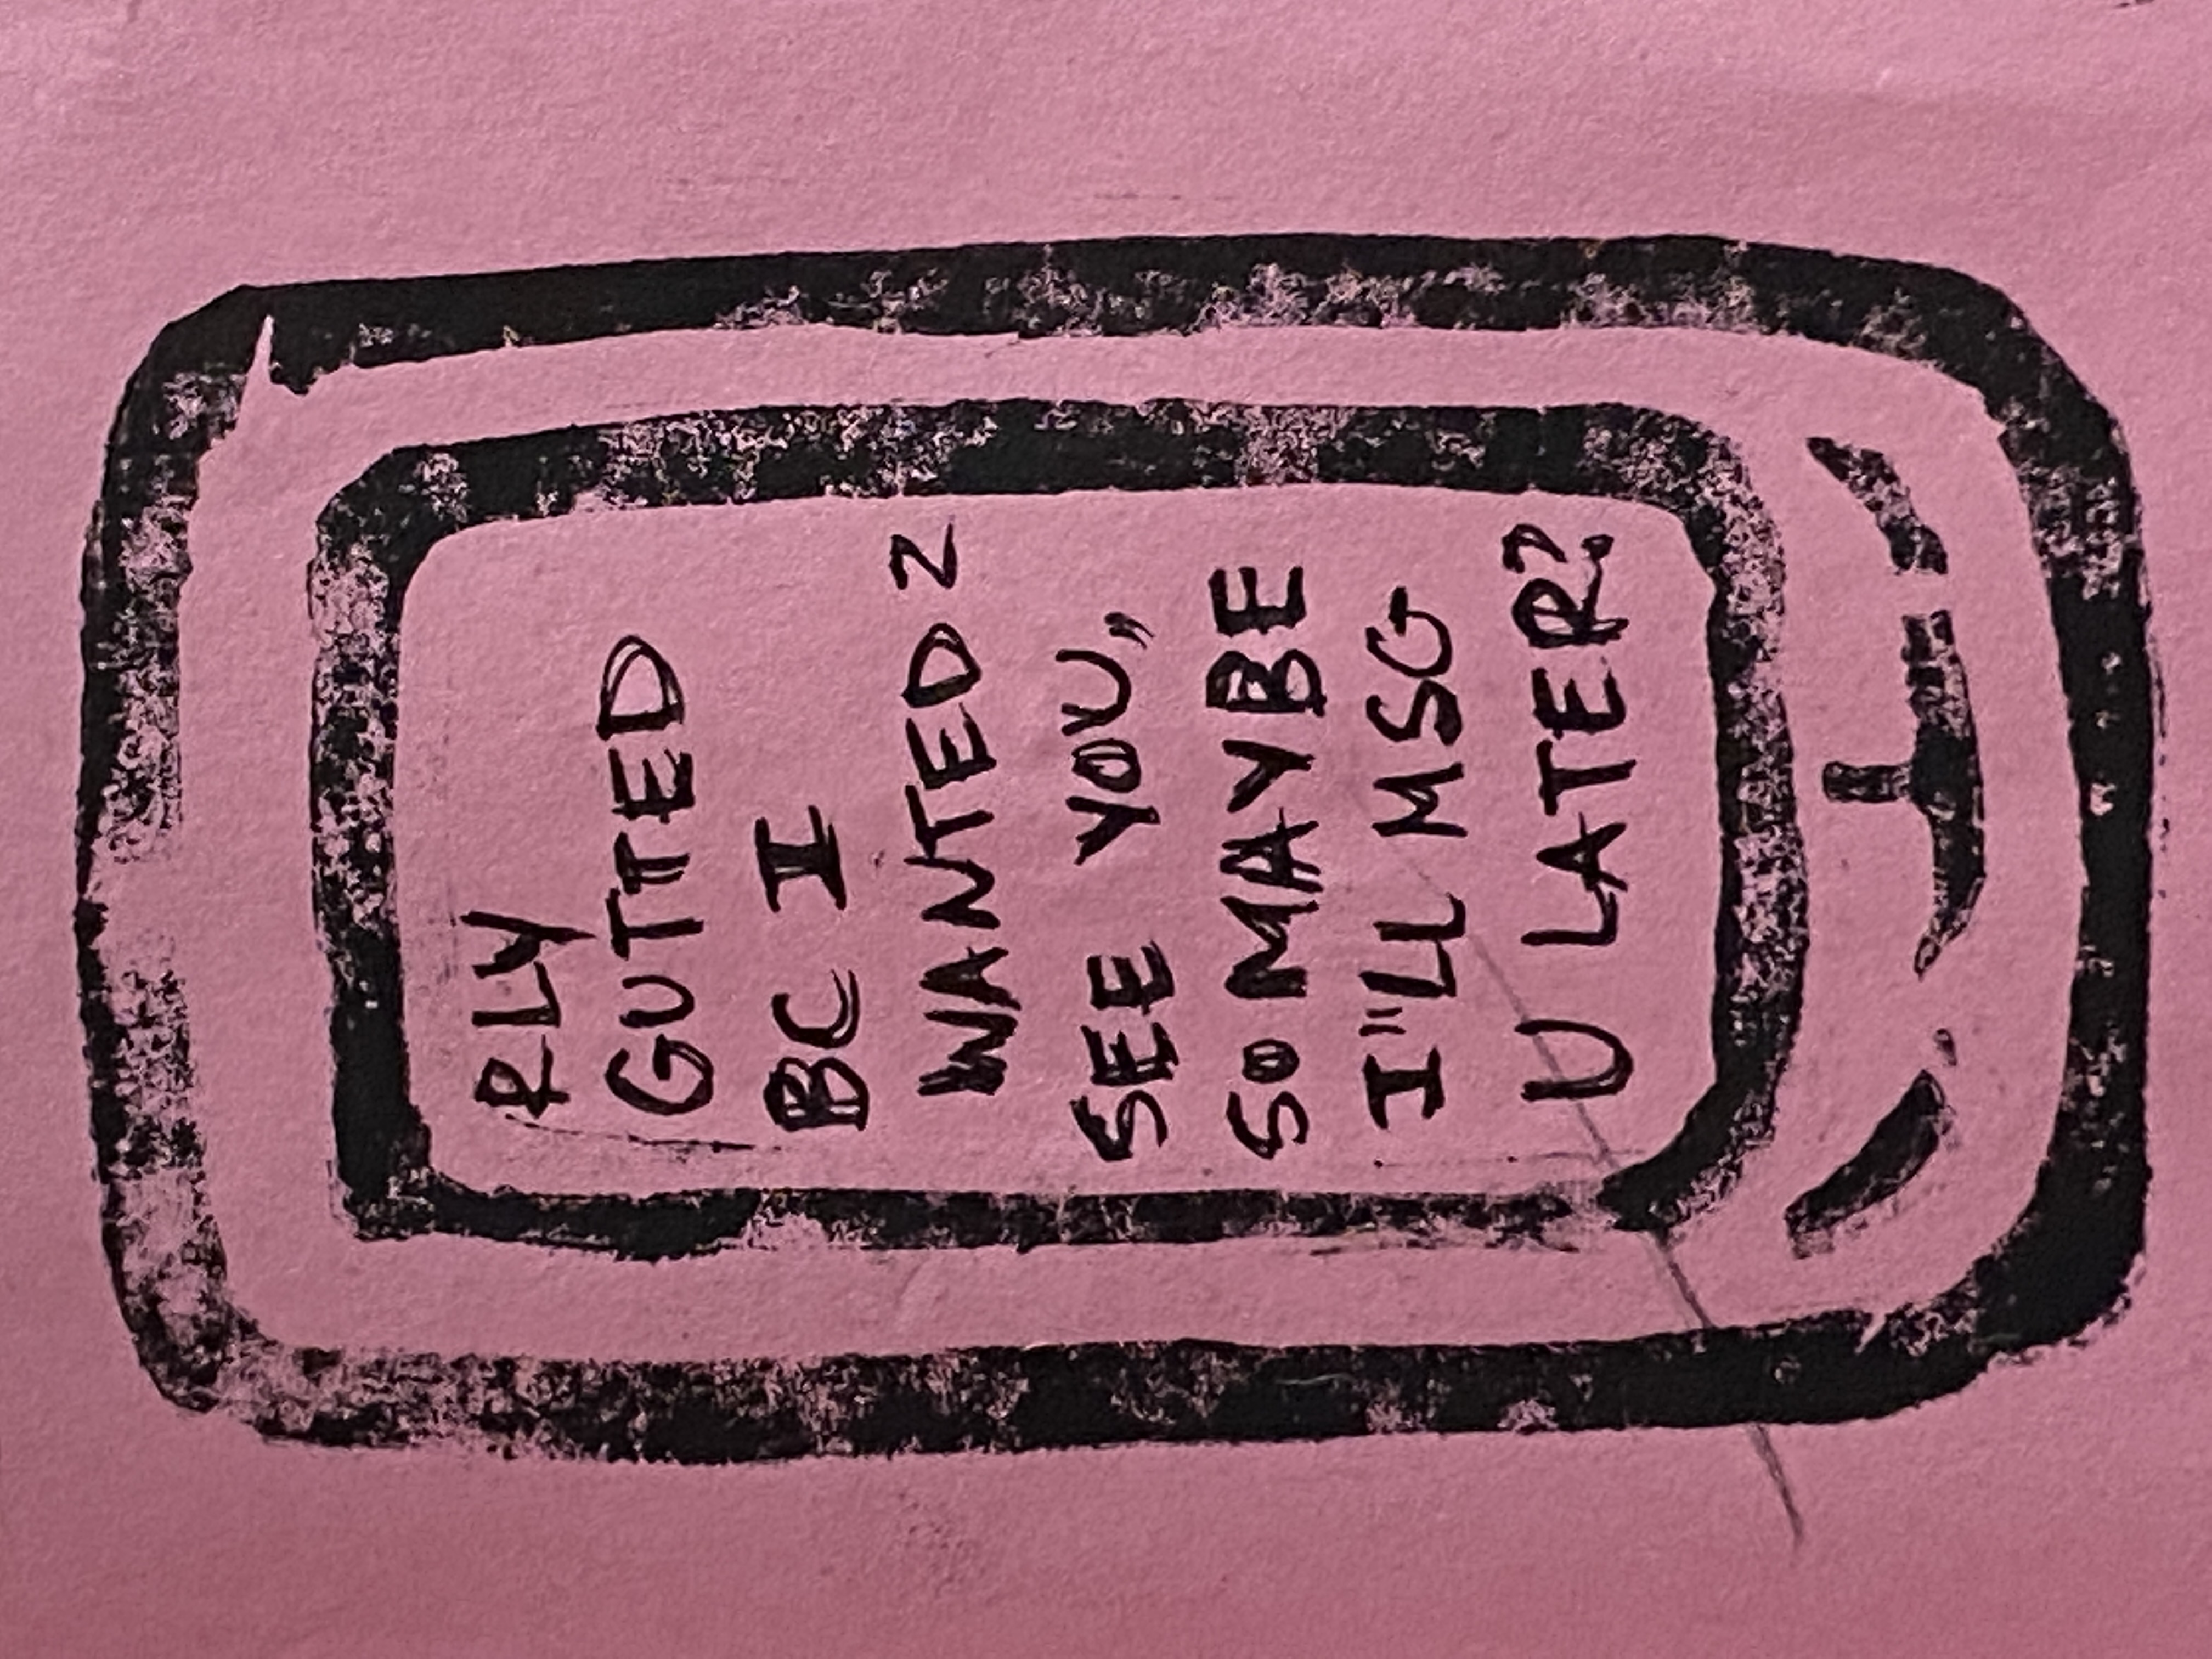 RLY
GUTTED
BC I
WANTED 2
SEE YOU,,
SO MAYBE
I"LL MSG
U LATER?